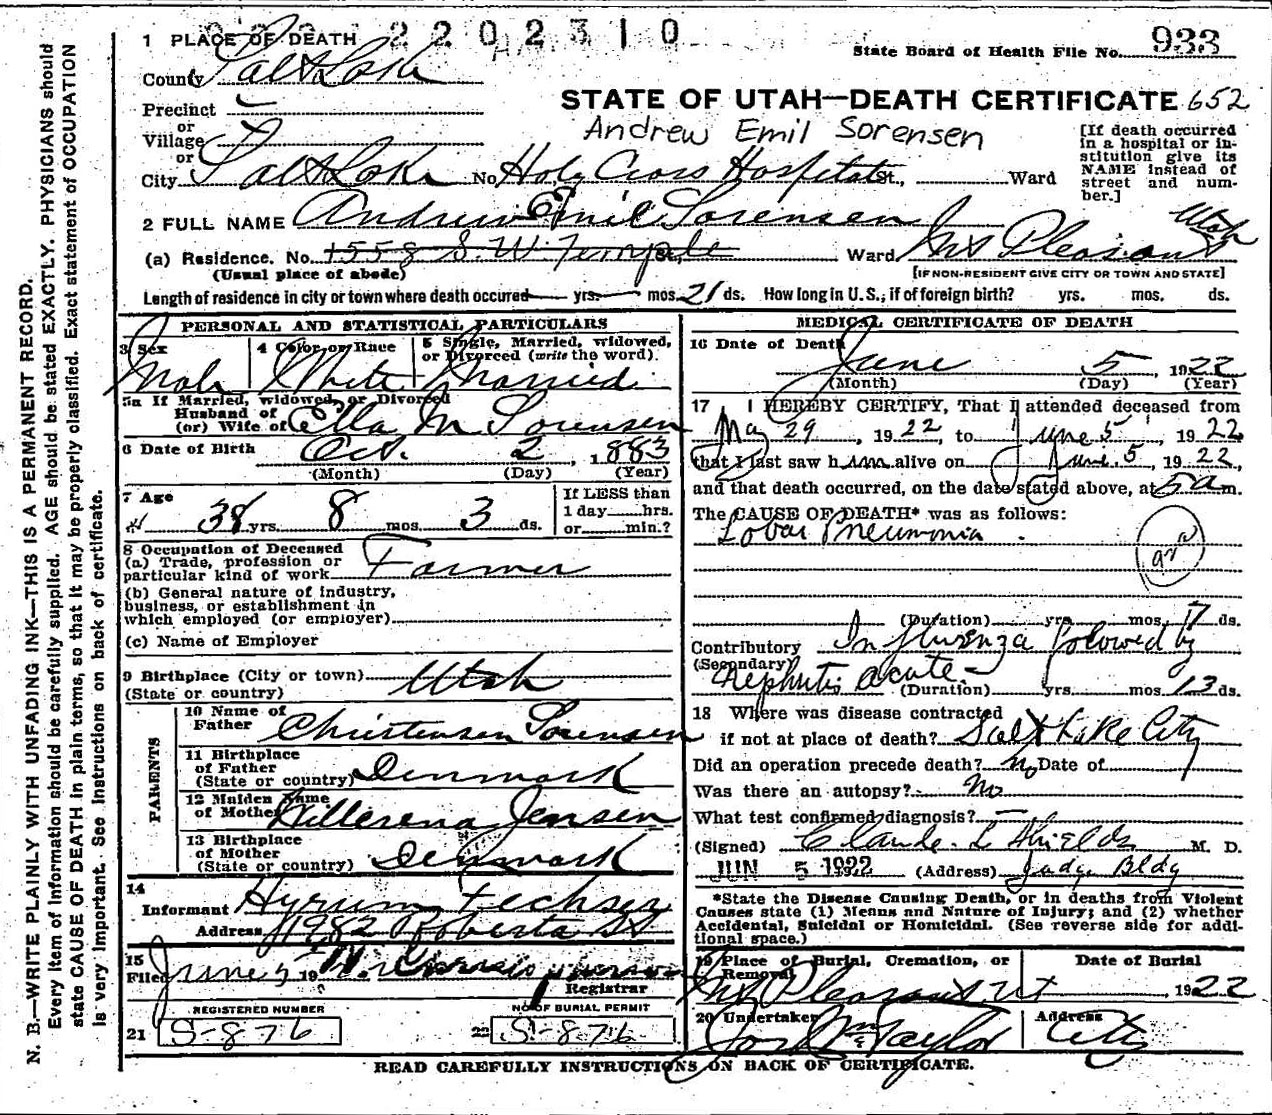 2202310
1 PLACE OF DEATH
State Board of Health File No. 933
County Salt Lake
Precinct
or
Village
or
City Salt Lake No. Holy Cross Hospital St., Ward
STATE OF UTAH—DEATH CERTIFICATE 652
Andrew Emil Sorensen
[If death occurred in a hospital or institution give its NAME instead of street and number.]
2 FULL NAME Andrew Emil Sorensen
(a) Residence. No. 1558 S. W. Temple St., Ward Mt Pleasant Utah
(Usual place of abode)
[IF NON-RESIDENT GIVE CITY OR TOWN AND STATE]
Length of residence in city or town where death occured yrs. mos. 21 ds. How long in U.S., if of foreign birth? yrs. mos. ds.
PERSONAL AND STATISTICAL PARTICULARS
3 Sex Male
4 Color or Race White
5 Single, Married, widowed, or Divorced (write the word). Married
5a If Married, widowed, or Divorced
Husband of
(or) Wife of Ella M Sorensen
6 Date of Birth Oct. 2, 1883
(Month) (Day) (Year)
7 Age 38 yrs. 8 mos. 3 ds.
If LESS than
1 day hrs.
or min.?
8 Occupation of Deceased
(a) Trade, profession or
particular kind of work Farmer
(b) General nature of industry,
business, or establishment in
which employed (or employer)
(c) Name of Employer
9 Birthplace (City or town) Utah
(State or country)
PARENTS
10 Name of
Father Christensen Sorensen
11 Birthplace
of Father
(State or country) Denmark
12 Maiden Name
of Mother Jensen
13 Birthplace
of Mother
(State or country) Denmark
14
Informant Hyrum
Address 1982 Roberta St
15
Filed June 5 19
Registrar
REGISTERED NUMBER
21 S-876
NO OF BURIAL PERMIT
22 S-876
MEDICAL CERTIFICATE OF DEATH
16 Date of Death June 5, 1922
(Month) (Day) (Year)
17 I HEREBY CERTIFY, That I attended deceased from
May 29, 1922, to June 5, 1922
that I last saw him alive on June 5, 1922,
and that death occurred, on the date stated above, at 5 a m.
The CAUSE OF DEATH* was as follows:
Lobar Pneumonia
(Duration) yrs. mos. 7 ds.
Contributory Influenza folowed by
(Secondary) Nephritis acute
(Duration) yrs. mos. 13 ds.
18 Where was disease contracted
if not at place of death? Salt Lake City
Did an operation precede death? no Date of
Was there an autopsy? No
What test confirmed diagnosis? —
(Signed) Claude L Shields M. D.
JUN 5 1922 (Address) Judge Bldg
*State the Disease Causing Death, or in deaths from Violent
Causes state (1) Means and Nature of Injury; and (2) whether
Accidental, Suicidal or Homicidal. (See reverse side for addi-
tional space.)
19 Place of Burial, Cremation, or
Removal
Mt Pleasant Ut
Date of Burial
1922
20 Undertaker Jos Wm Taylor
Address City
READ CAREFULLY INSTRUCTIONS ON BACK OF CERTIFICATE.
N. B.—WRITE PLAINLY WITH UNFADING INK—THIS IS A PERMANENT RECORD.
Every item of information should be carefully supplied. AGE should be stated EXACTLY. PHYSICIANS should
state CAUSE OF DEATH in plain terms, so that it may be properly classified. Exact statement of OCCUPATION
is very important. See Instructions on back of certificate.